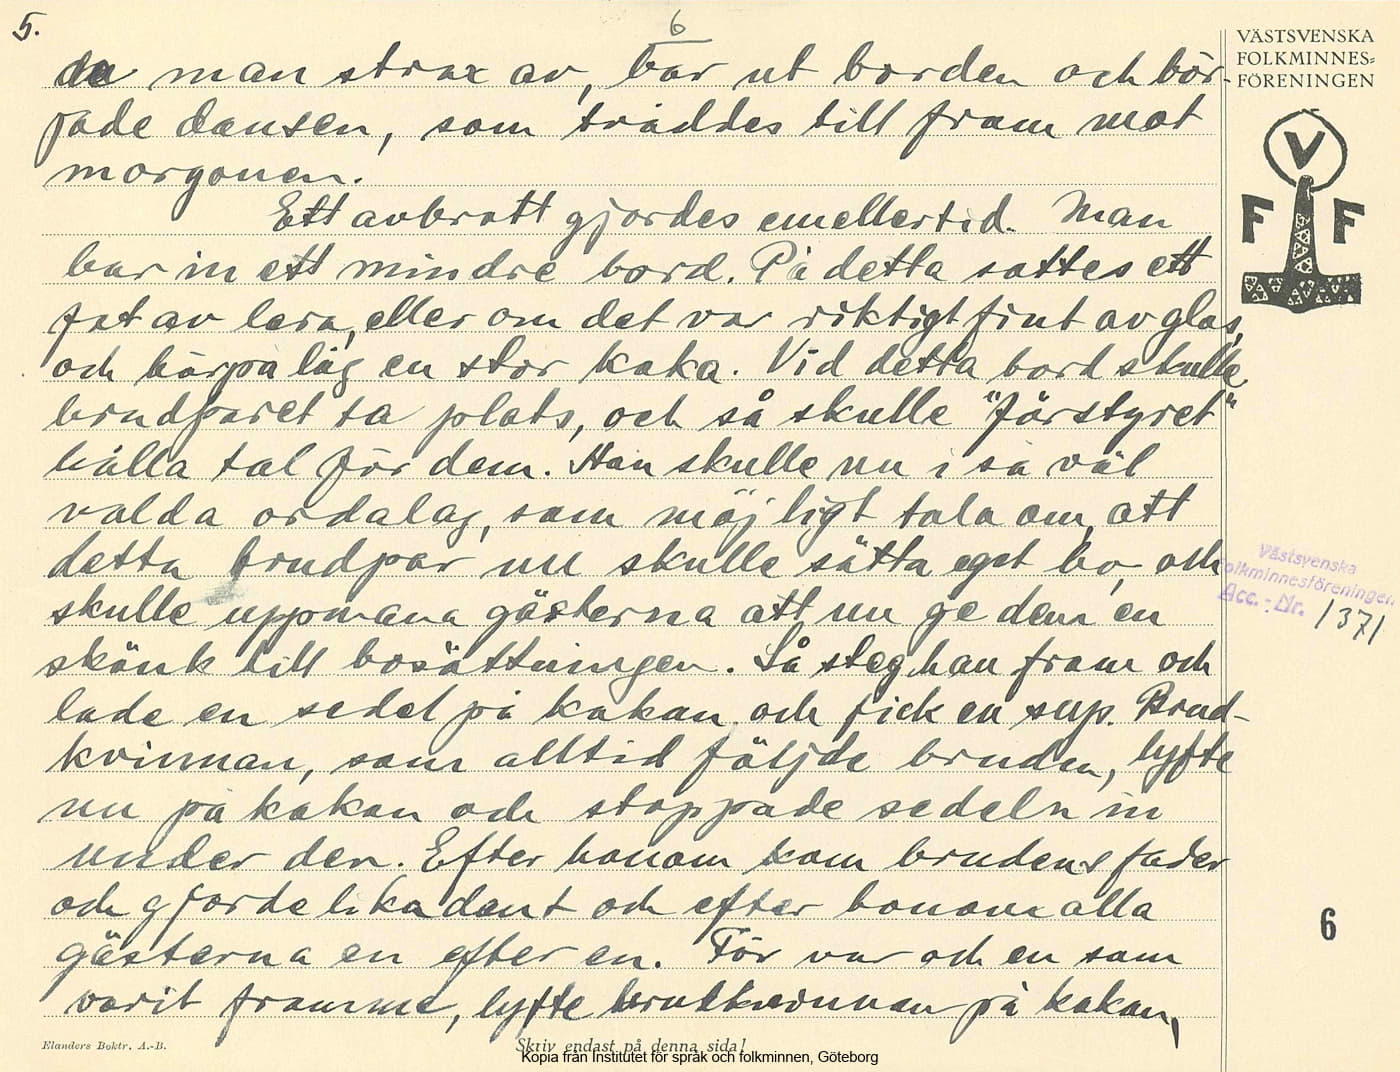 5.
6
VÄSTSVENSKA
FOLKMINNES=
FÖRENINGEN
V
F F
da man strax av, bar ut borden och bör-
jade dansen, som tråddes till fram mot
morgonen.
Ett avbrott gjordes emellertid. Man
bar in ett mindre bord. På detta sattes ett
fat av lera, eller om det var riktigt fint av glas,
och härpå låg en stor kaka. Vid detta bord skulle
brudparet ta plats, och så skulle "förstyret"
hålla tal för dem. Han skulle nu i så väl
valda ordalag, som möjligt tala om, att
detta brudpar nu skulle sätta eget bo, och
skulle uppmana gästerna att nu ge dem en
skänk till bosättningen. Så steg han fram och
lade en sedel på kakan och fick en sup. Brud-
kvinnan, som alltid följde bruden, lyfte
nu på kakan och stoppade sedeln in
under den. Efter honom kom brudens fader
och gjorde likadant och efter honom alla
gästerna en efter en. För var och en som
varit framme, lyfte brudkvinnan på kakan,
Västsvenska
Folkminnesföreningen
Acc.-Nr. 1371
6
Elanders Boktr. A.-B.
Skriv endast på denna sida!
Kopia från Institutet för språk och folkminnen, Göteborg